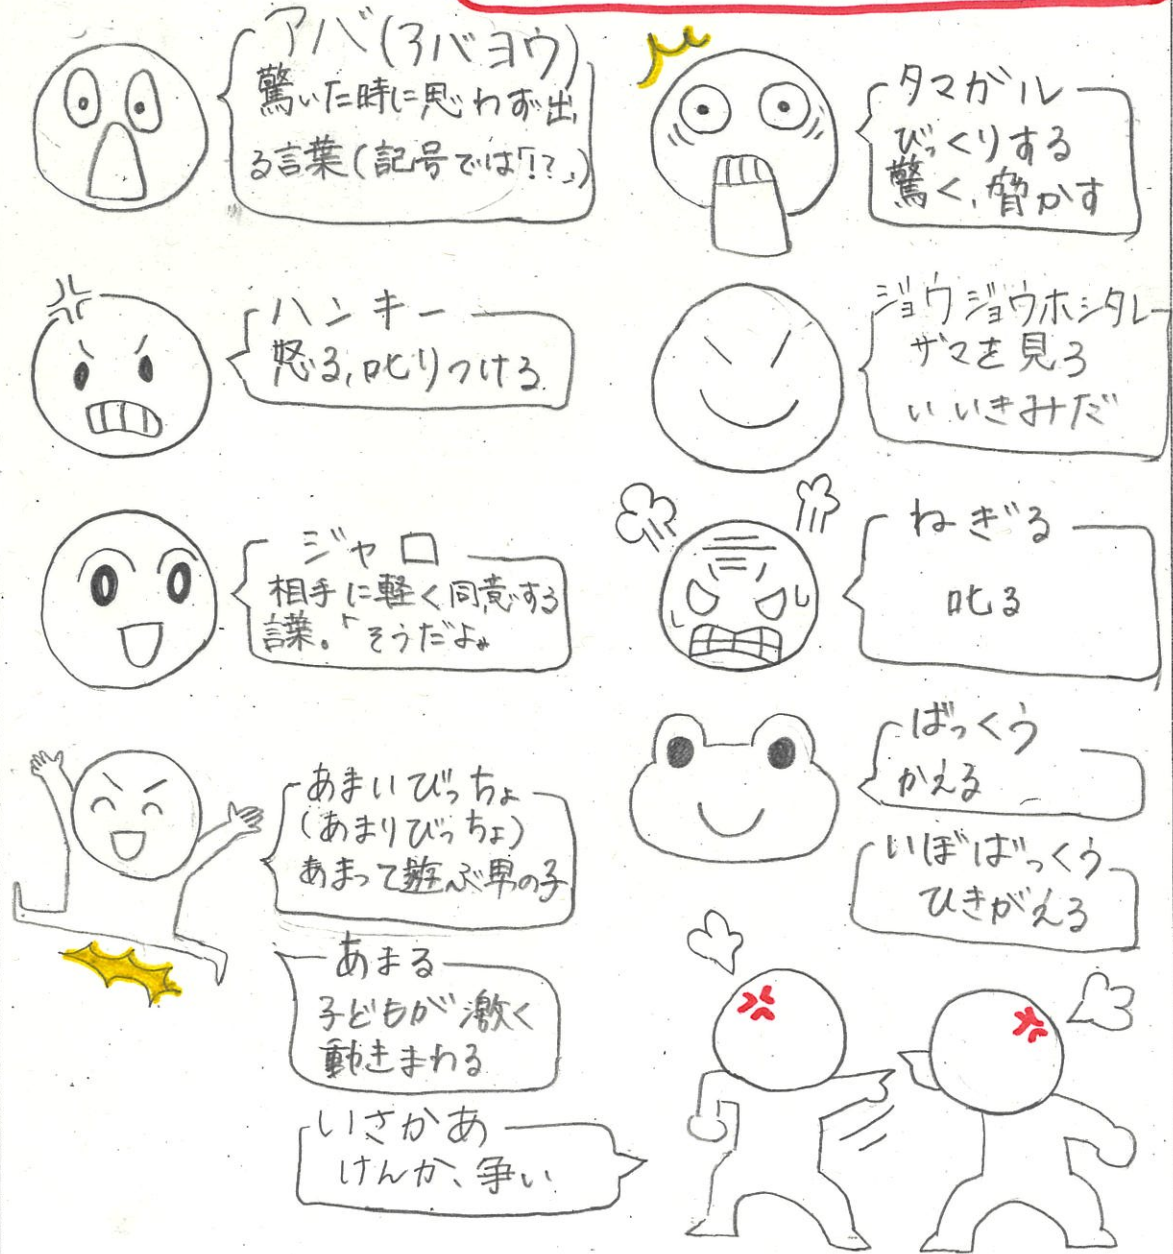 アバ(アバヨウ)
驚いた時に思わず出
る言葉(記号では「!?」)
ハンキー
怒る,叱りつける
ジャロ
相手に軽く同意する
言葉。「そうだよ」
あまいびっちょ
(あまりびっちょ)
あまって遊ぶ男の子
あまる
子どもが激く
動きまわる
いさかあ
けんか、争い
タマガル
びっくりする
驚く,脅かす
ジョウジョウホシタレー
ザマを見ろ
いいきみだ
ねぎる
叱る
ばっくう
かえる
いぼばっくう
ひきがえる